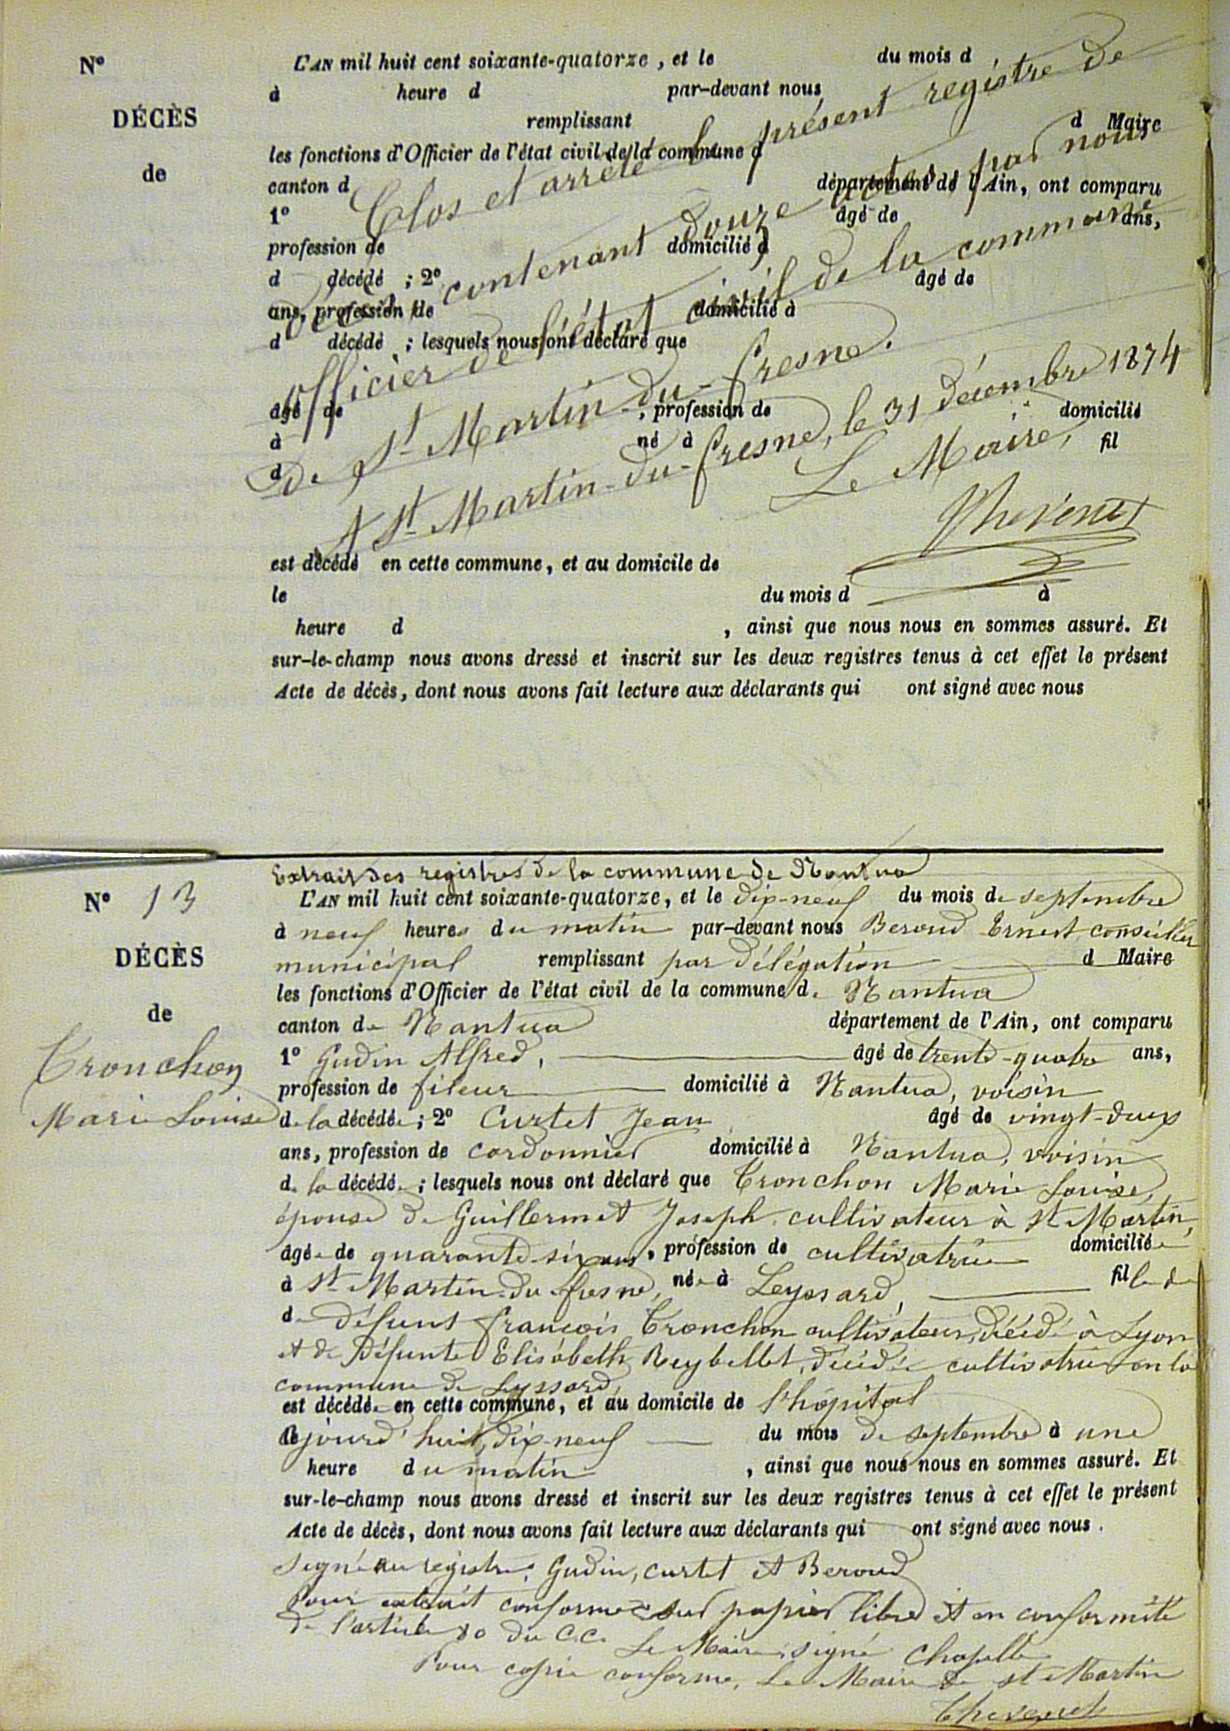 N°
DÉCÈS
de
L'AN mil huit cent soixante-quatorze, et le du mois d
à heure d par-devant nous
remplissant d Maire
les fonctions d'Officier de l'état civil de la commune d
canton d département de l'Ain, ont comparu
1° âgé de ans,
profession de domicilié à
d décédé ; 2° âgé de
ans, profession de domicilié à
d décédé ; lesquels nous ont déclaré que
âgé de , profession de domicilié
à né à fil
d
Clos et arrêté le présent registre de
décès contenant douze actes par nous
officier de l'état civil de la commune
de St Martin-du-fresne.
A St Martin-du-fresne, le 31 décembre 1874
Le Maire,
Thévenet
est décédé en cette commune, et au domicile de
le du mois d à
heure d , ainsi que nous nous en sommes assuré. Et
sur-le-champ nous avons dressé et inscrit sur les deux registres tenus à cet effet le présent
Acte de décès, dont nous avons fait lecture aux déclarants qui ont signé avec nous
Extrait des registres de la commune de Nantua
N° 13
DÉCÈS
de
Tronchon
Marie Louise
L'AN mil huit cent soixante-quatorze, et le dix-neuf du mois de septembre
à neuf heures du matin par-devant nous Beroud Ernest, conseiller
municipal remplissant par délégation d Maire
les fonctions d'Officier de l'état civil de la commune de Nantua
canton de Nantua département de l'Ain, ont comparu
1° Gudin Alfred, âgé de trente-quatre ans,
profession de fileur domicilié à Nantua, voisin
de la décédée ; 2° Curtet Jean âgé de vingt-deux
ans, profession de cordonnier domicilié à Nantua, voisin
de la décédée ; lesquels nous ont déclaré que Tronchon Marie Louise,
épouse de Guillermet Joseph cultivateur à St Martin,
âgée de quarante-six ans, profession de cultivatrice domiciliée
à St Martin-du-fresne, née à Leyssard, fille de
de défunt françois Tronchon cultivateur, décédé à Lyon
et de défunte Elisabeth Reybellet, décédée cultivatrice en la
commune de Leyssard,
est décédée en cette commune, et au domicile de l'hôpital
cejourd'huit, dix-neuf du mois de septembre à une
heure du matin , ainsi que nous nous en sommes assuré. Et
sur-le-champ nous avons dressé et inscrit sur les deux registres tenus à cet effet le présent
Acte de décès, dont nous avons fait lecture aux déclarants qui ont signé avec nous.
Signé au registre: Gudin, curtet et Beroud
Pour extrait conforme sur papier libre et en conformité
de l'article 80 du C.C. Le Maire, signé Chapelle
Pour copie conforme, Le Maire de St Martin
Thévenet